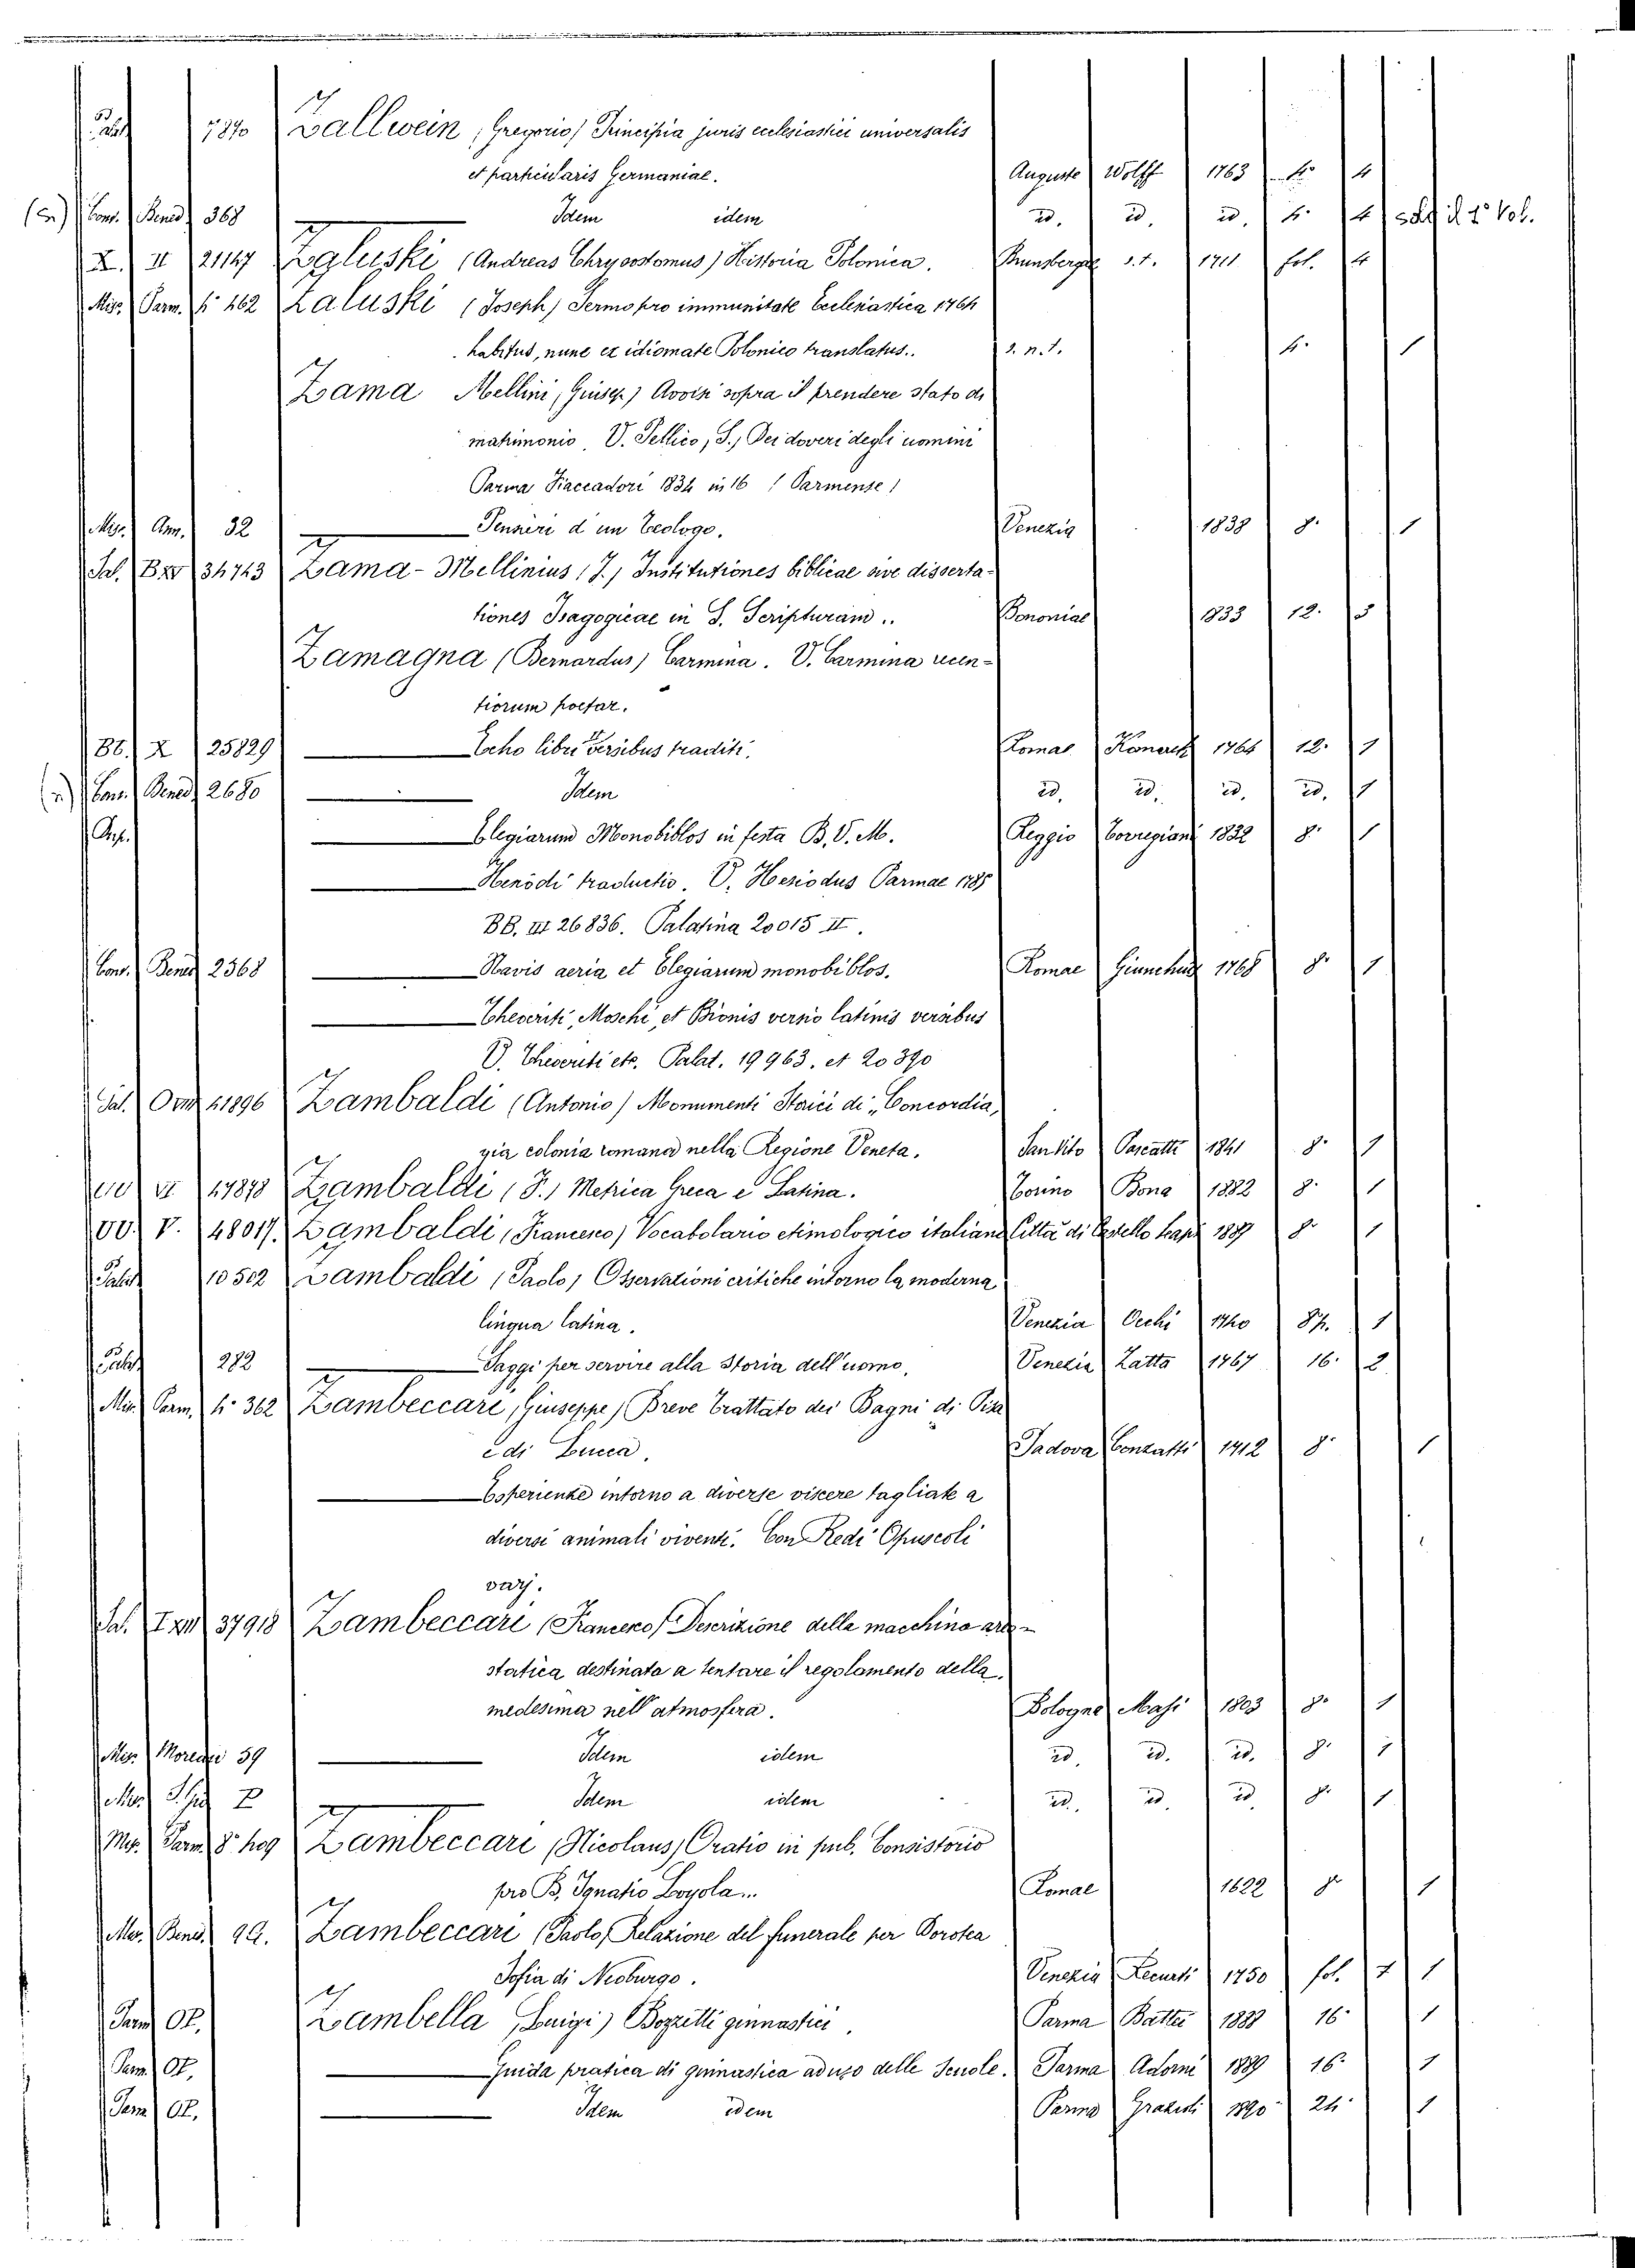 Palat. 7870 Zallwein (Gregorio) Principia juris ecclesiastici universalis
et particularis Germaniae. Auguste Wolff 1763 4.º 4
Conv. Bened. 368 Idem idem id. id. id. 4. 4
Z. II 21147 Zaluski (Andreas Chrysostomus) Historia Polonica. Brunsbergae s.t. 1711 fol. 4
Misc. Parm. 4º 462 Zaluski (Joseph) Sermo pro immunitate Ecclesiastica 1764
habitus, nunc ex idiomate Polonico translatus.. s. n. t. 4. 1
Zama Mellini (Giusep.) Avvisi sopra il prendere stato di
matrimonio V. Pellico, S., Dei doveri degli uomini
Parma Fiaccadori 1834 in 16 (Parmense)
Misc. Amm. 32 Pensieri d'un Teologo. Venezia 1838 8. 1
Sal. 34743 Zama-Mellinius (J.) Institutiones biblicae sive disserta-
tiones Isagogicae in S. Scripturam.. Bononiae 1833 12. 3
Zamagna (Bernardus) Carmina. V. Carmina recen-
tiorum poetar.
BB. X 25829 Echo libri versibus traditi. Romae Komarek 1764 12. 1
Conv. Bened. 2680 Idem id. id. id. id. 1
Elegiarum Monobiblos in festa B. V. M. Reggio Torregiani 1832 8. 1
Hesiodi traductio. V. Hesiodus Parmae 1785
BB. III 26836. Palatina 20015 II.
Conv. Bened. 2568 Navis aeria et Elegiarum monobiblos. Romae Giunchi 1768 8. 1
Theocriti, Moschi, et Bionis versio latinis versibus
V. Theocriti etc. Palat. 19963. et 20390
Sal. 41896 Zambaldi (Antonio) Monumenti Storici di "Concordia,
già colonia romana nella Regione Veneta. Sanvito Pascatti 1841 8. 1
47878 Zambaldi (F.) Metrica Greca e Latina. Torino Bona 1882 8. 1
V. 48017. Zambaldi (Francesco) Vocabolario etimologico italiano Città di Castello Lapi 1889 8. 1
Palat. 10502 Zambaldi (Paolo) Osservazioni critiche intorno la moderna
lingua latina. Venezia Occhi 1740 8º. 1
Palat. 282 Saggi per servire alla storia dell'uomo. Venezia Zatta 1767 16. 2
Misc. Parm. 4. 362 Zambeccari (Giuseppe) Breve Trattato dei Bagni di Pisa
e di Lucca. Padova Conzatti 1712 8. 1
Esperienze intorno a diverse viscere tagliate a
diversi animali viventi. Con Redi Opuscoli
varj.
Sal. 37918 Zambeccari (Francesco) Descrizione della macchina areo-
statica destinata a tentare il regolamento della
medesima nell'atmosfera. Bologna Masi 1803 8. 1
Misc. Moreau 59 Idem idem id. id. id. 8. 1
Idem idem id. id. id. 8. 1
Misc. Parm. 8. 409 Zambeccari (Nicolaus) Oratio in pub. Consistorio
pro B. Ignatio Loyola... Romae 1622 8. 1
Misc. Bened. Zambeccari (Paolo) Relazione del funerale per Dorotea
Sofia di Neoburgo. Venezia Recurti 1750 fol. 1
Parm. OP. Zambella (Luigi) Bozzetti ginnastici. Parma Battei 1888 16. 1
Parm. OP. Guida pratica di ginnastica ad uso delle Scuole. Parma Adorni 1889 16. 1
Parm. OP. Idem idem Parma Grazioli 1890 24. 1